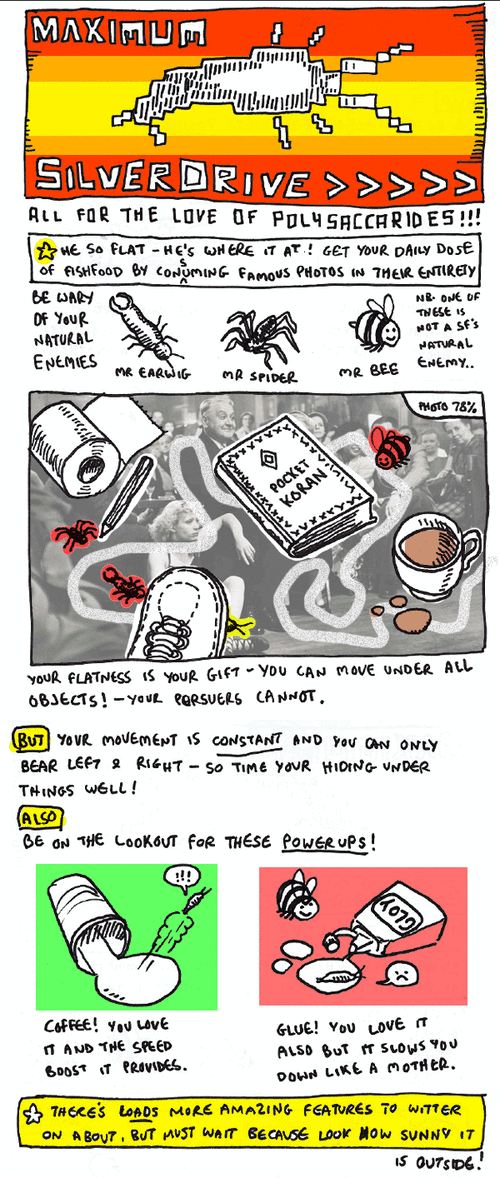 MAXIMUM
SILVERDRIVE >>>>>
ALL FOR THE LOVE OF POLYSACCARIDES!!!
HE SO FLAT - HE'S WHERE IT AT! GET YOUR DAILY DOSE
OF FISHFOOD BY CONUMING FAMOUS PHOTOS IN THEIR ENTIRETY
S
^
BE WARY
OF YOUR
NATURAL
ENEMIES
MR EARWIG
MR SPIDER
MR BEE
NB. ONE OF
THESE IS
NOT A SF'S
NATURAL
ENEMY..
PHOTO 78%
POCKET
KORAN
YOUR FLATNESS IS YOUR GIFT - YOU CAN MOVE UNDER ALL
OBJECTS! - YOUR PERSUERS CANNOT.
BUT YOUR MOVEMENT IS CONSTANT AND YOU CAN ONLY
BEAR LEFT & RIGHT - SO TIME YOUR HIDING UNDER
THINGS WELL!
ALSO
BE ON THE LOOKOUT FOR THESE POWERUPS!
!!!
GLOY
COFFEE! YOU LOVE
IT AND THE SPEED
BOOST IT PROVIDES.
GLUE! YOU LOVE IT
ALSO BUT IT SLOWS YOU
DOWN LIKE A MOTHER.
THERE'S LOADS MORE AMAZING FEATURES TO WITTER
ON ABOUT, BUT MUST WAIT BECAUSE LOOK HOW SUNNY IT
IS OUTSIDE!